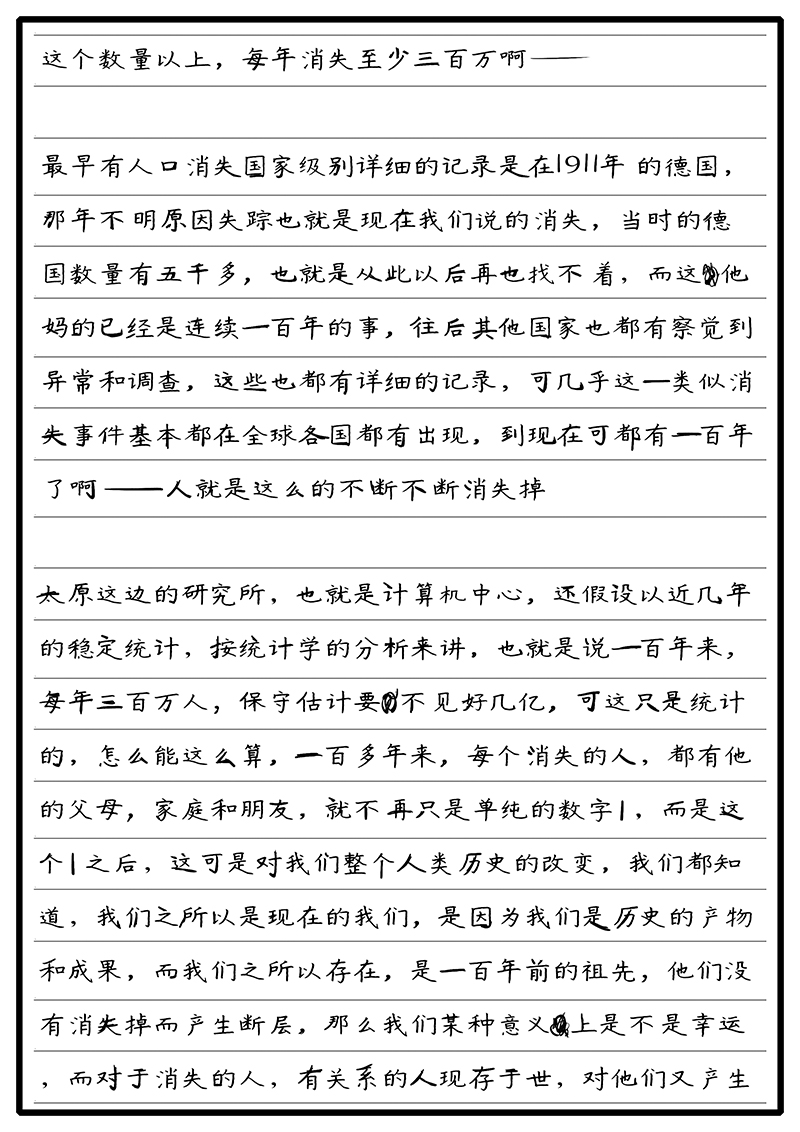 这个数量以上，每年消失至少三百万啊——
最早有人口消失国家级别详细的记录是在1911年 的德国，
那年不明原因失踪也就是现在我们说的消失，当时的德
国数量有五千多，也就是从此以后再也找不着，而这他
妈的已经是连续一百年的事，往后其他国家也都有察觉到
异常和调查，这些也都有详细的记录，可几乎这一类似消
失事件基本都在全球各国都有出现，到现在可都有一百年
了啊——人就是这么的不断不断消失掉
太原这边的研究所，也就是计算机中心，还假设以近几年
的稳定统计，按统计学的分析来讲，也就是说一百年来，
每年三百万人，保守估计要不见好几亿，可这只是统计
的，怎么能这么算，一百多年来，每个消失的人，都有他
的父母，家庭和朋友，就不再只是单纯的数字1，而是这
个1之后，这可是对我们整个人类历史的改变，我们都知
道，我们之所以是现在的我们，是因为我们是历史的产物
和成果，而我们之所以存在，是一百年前的祖先，他们没
有消失掉而产生断层，那么我们某种意义上是不是幸运
，而对于消失的人，有关系的人现存于世，对他们又产生